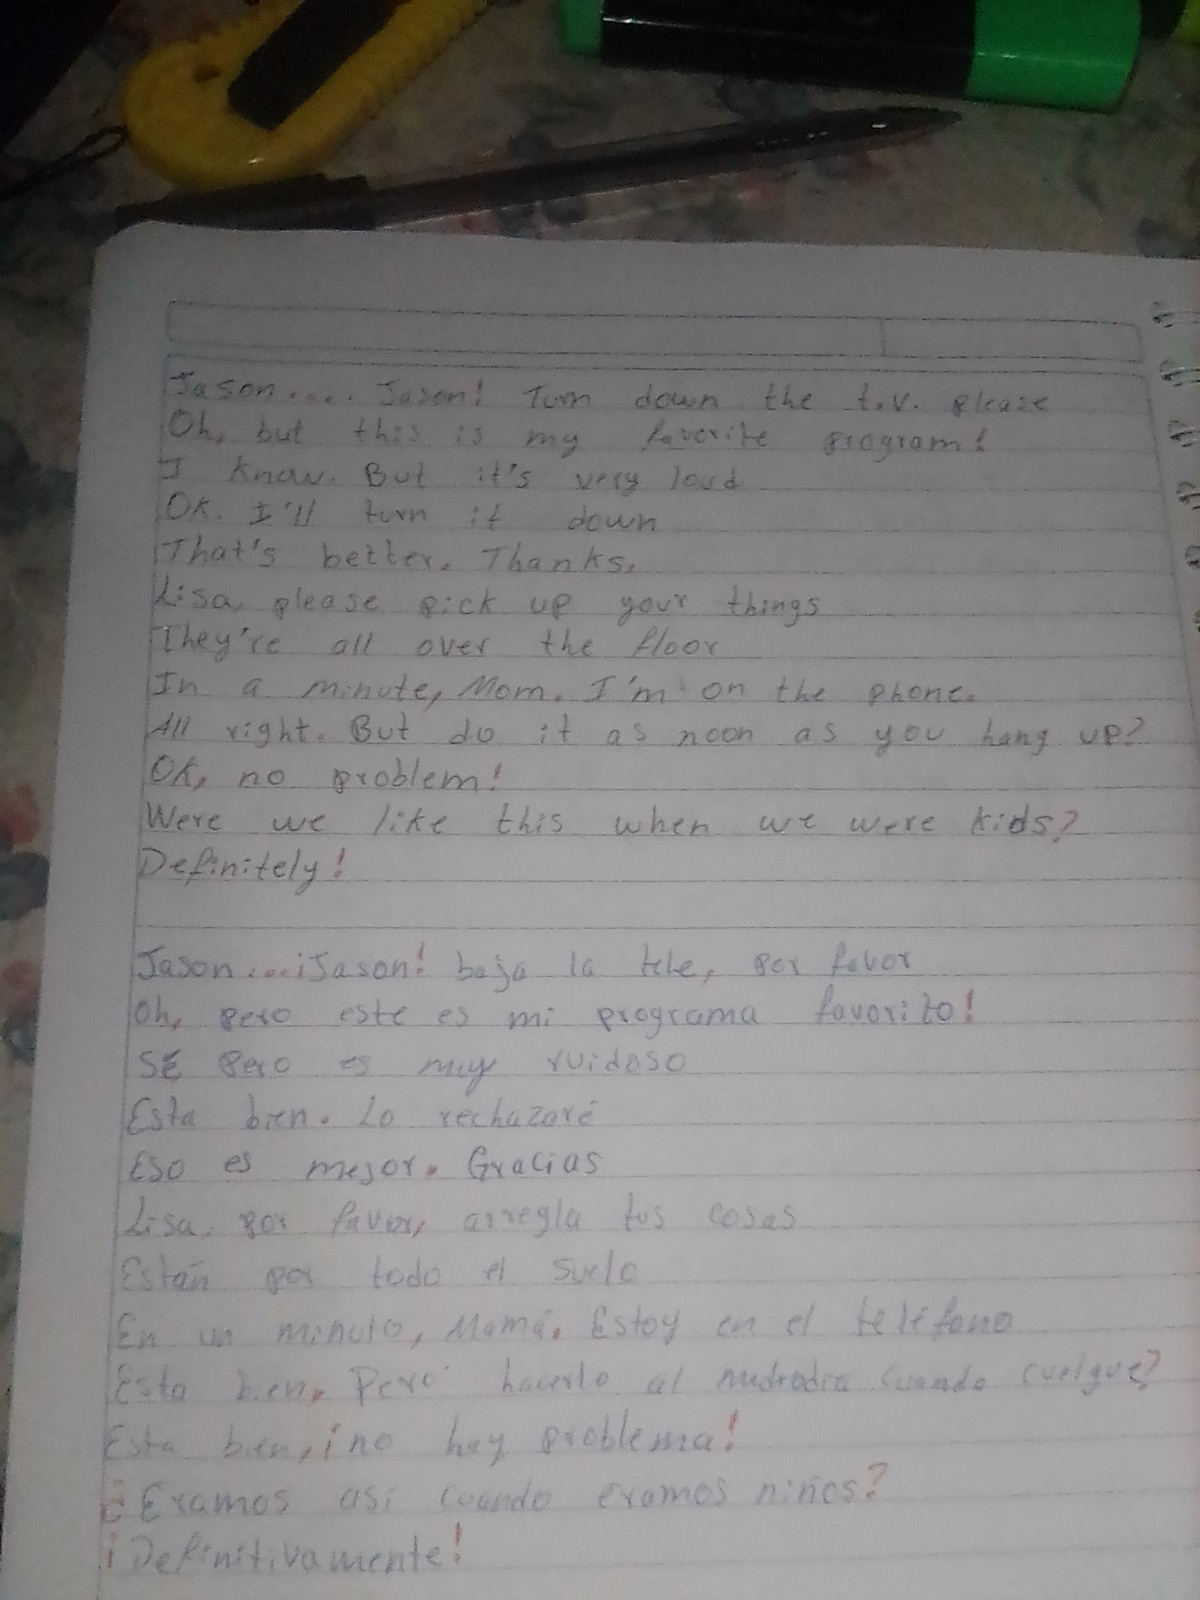 Jason.... Jason! Turn down the t.v. please
Oh, but this is my favorite program!
I know. But it's very loud
OK. I'll turn it down
That's better. Thanks.
Lisa, please pick up your things
They're all over the floor
In a minute, Mom. I'm on the phone.
All right. But do it as noon as you hang up?
OK, no problem!
Were we like this when we were kids?
Definitely!
Jason....¡Jason! baja la tele, por favor
Oh, pero este es mi programa favorito!
SÉ pero es muy ruidoso
Esta bien. Lo rechazaré
Eso es mejor. Gracias
Lisa, por favor, arregla tus cosas
Están por todo el suelo
En un minuto, Mamá. Estoy en el teléfono
Esta bien, Pero hacerlo al cuando cuelgue?
Esta bien, ¡no hay problema!
¿Eramos asi cuando éramos niños?
¡Definitivamente!